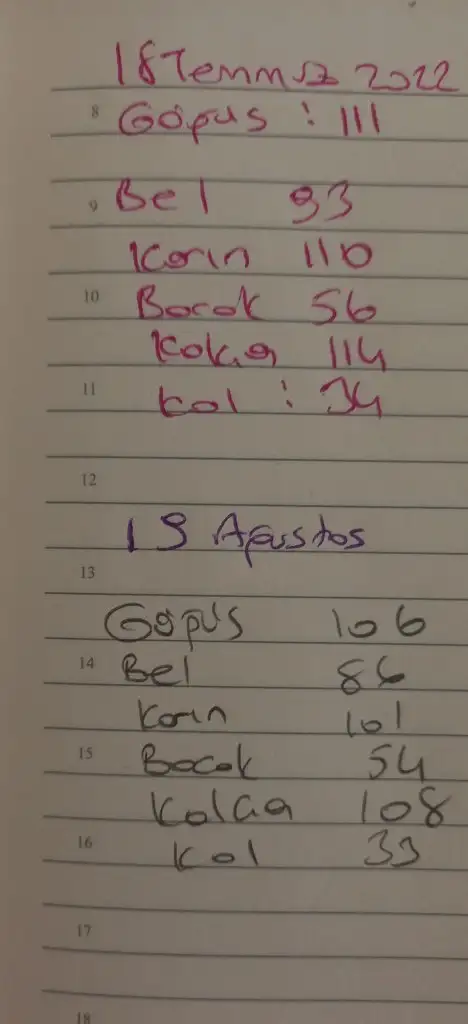 18 Temmuz 2022
8 Göğüs : 111
9 Bel 93
Karın 110
10 Bacak 56
Kalça 114
11 kol : 34
12
19 Ağustos
13
Göğüs 106
14 Bel 86
Karın 101
15 Bacak 54
Kalça 108
16 Kol 33
17
18